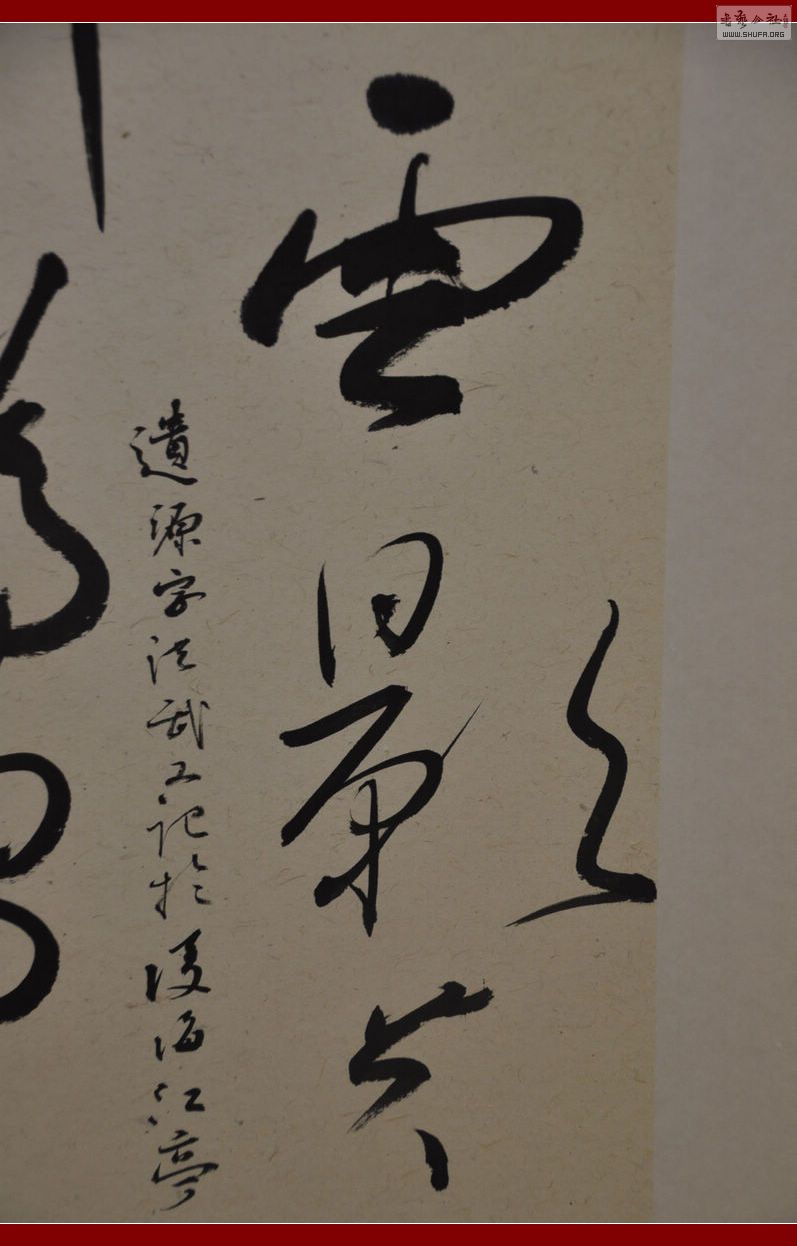 書藝公社
WWW.SHUFA.ORG
雲影共
遺源字法武記於後海江亭